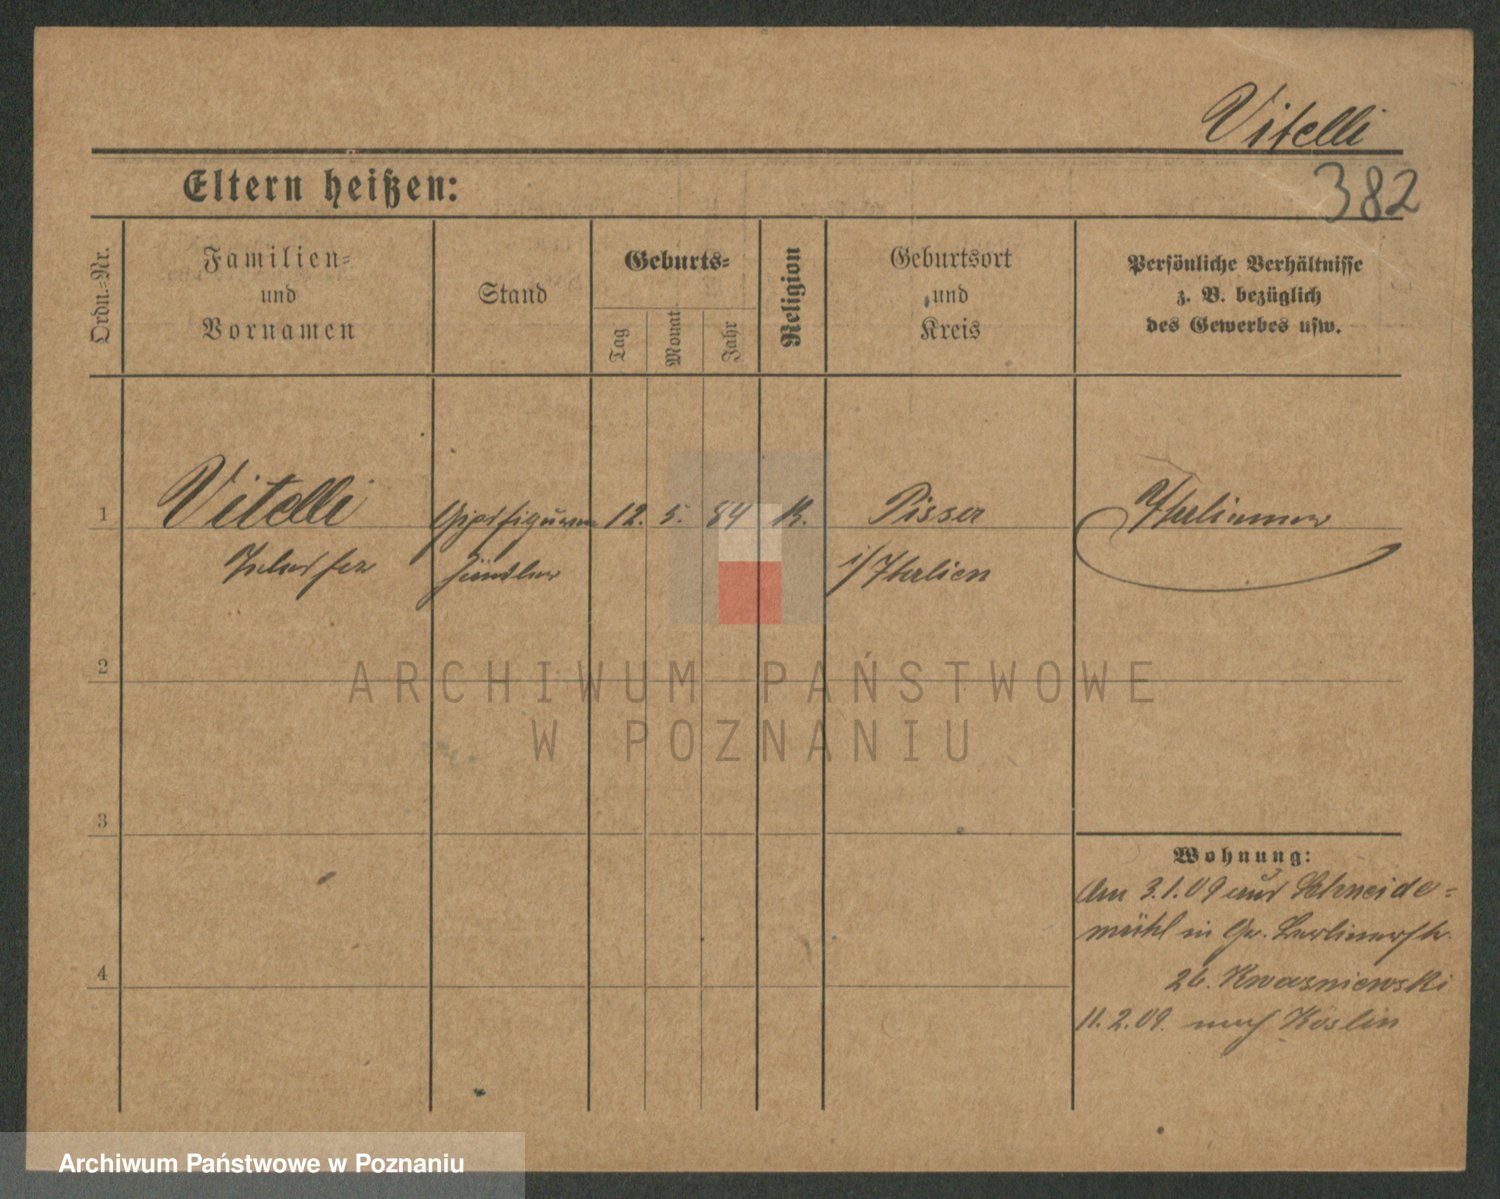 Vitelli
382
Eltern heißen:
Ordn.-Nr.
Familien-
und
Vornamen
Stand
Geburts-
Tag
Monat
Jahr
Religion
Geburtsort
und
Kreis
Persönliche Verhältnisse
z. B. bezüglich
des Gewerbes usw.
1
Vitelli
Gipsfiguren
12. 5. 84
K.
Händler
i/Italien
Italiener
2
ARCHIWUM PAŃSTWOWE
W POZNANIU
3
Wohnung:
Am 3.1.09 aus Schneide-
mühl in Gr. Berlinerstr.
26. Kwasniewski
4
11.2.09. nach Köslin
Archiwum Państwowe w Poznaniu